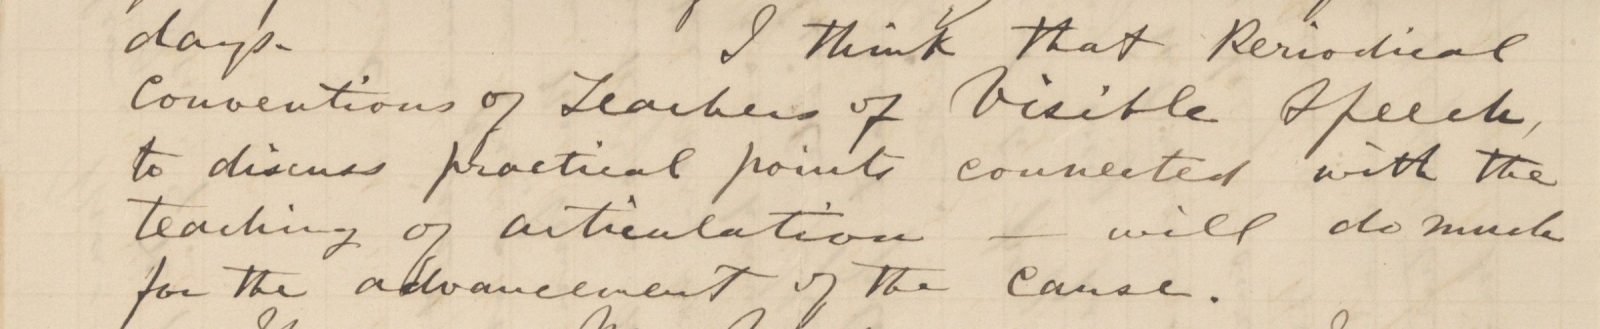 days. I think that Periodical
Conventions of Teachers of Visible Speech,
to discuss practical points connected with the
teaching of articulation — will do much
for the advancement of the cause.